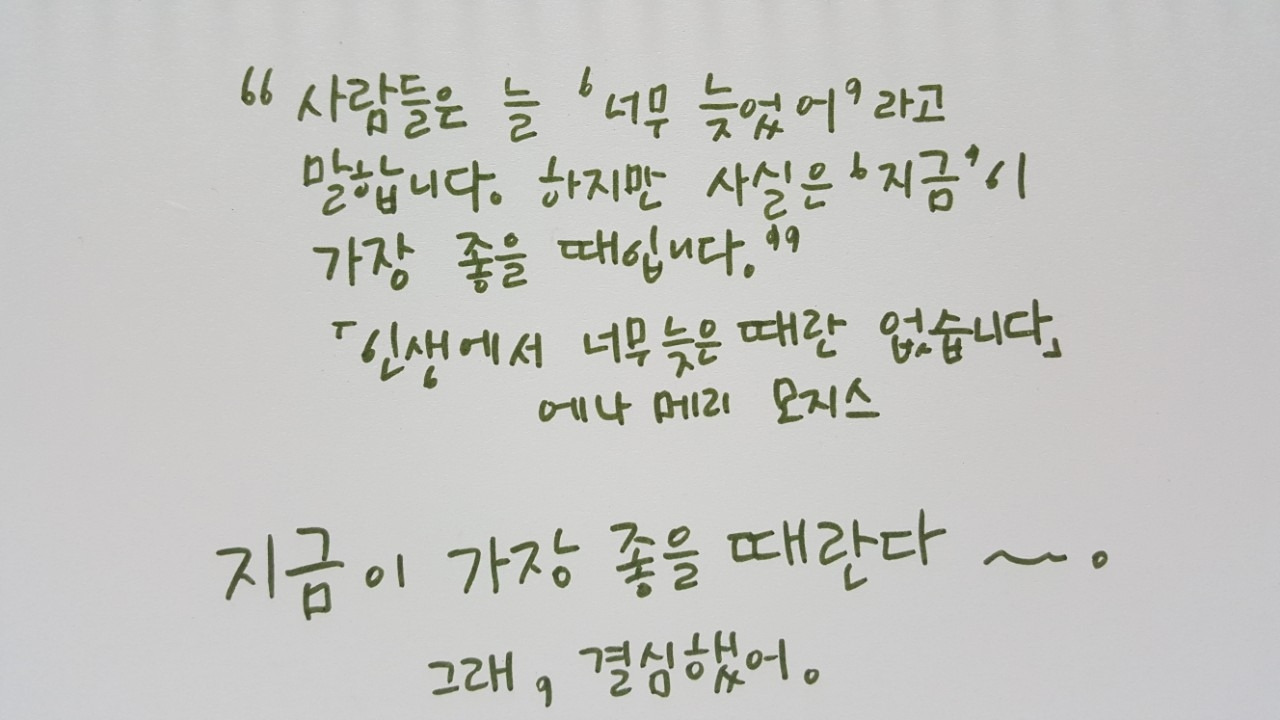 “사람들은 늘 ‘너무 늦었어’라고
말합니다. 하지만 사실은 ‘지금’이
가장 좋을 때입니다.”
「인생에서 너무 늦은 때란 없습니다」
에나 메리 모지스
지금이 가장 좋을 때란다 ~.
그래, 결심했어.